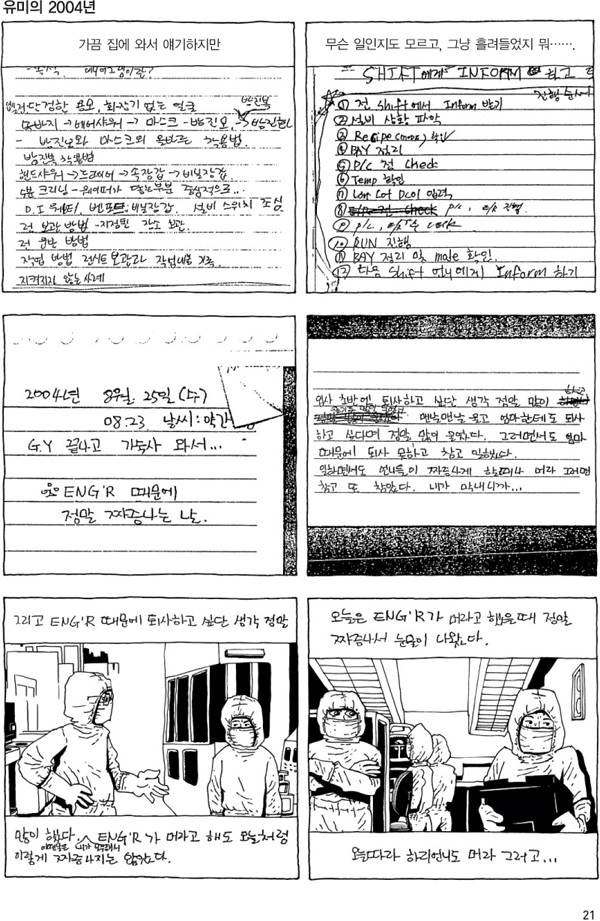 유미의 2004년
가끔 집에 와서 얘기하지만
무슨 일인지도 모르고, 그냥 흘려들었지 뭐…….
단정한 용모, 화장기 없는 얼굴
방진복
→ 에어샤워 → 마스크 → 방진모 →
- 방진모와 마스크의 올바른 착용법
방진복 착용법
핸드샤워 → 드라이어 → 속장갑 → 비닐장갑
D.I 워터, 비닐장갑 설비 스위치 조심
런 보관 방법 - 지정된 장소 보관
런 운반 방법
작업 방법 런시트 보관과 작업내용 기록
지켜지지 않는 사례
SHIFT에게 INFORM 하고
진행순서
① 전 shift에서 Inform 받기
② 설비 상황 파악
③ Recipe (mode) 확인
④ BAY 정리
⑤ P/C 전 Check
⑥ Temp 확인
⑦ Low Lot DCOI 입력
⑩ RUN 진행
⑪ BAY 정리 및 mode 확인
⑫ 다음 shift 언니에게 Inform 하기
2004년 8월 25일 (수)
08:23 날씨: 약간
G.Y 끝나고 기숙사 와서...
ENG'R 때문에
정말 짜증나는 날.
입사 초반에 퇴사하고 싶단 생각 정말 많이 하고
맨날맨날 울고 엄마한테도 퇴사
하고 싶다며 정말 많이 울었다. 그러면서도 엄마
때문에 퇴사 못하고 참고 일했다.
일하면서도 언니들이 짜증나게 하던지 머라 그러면
참고 또 참았다. 내가 막내니까...
그리고 ENG'R 때문에 퇴사하고 싶단 생각 정말
많이 했다. ENG'R가 머라고 해도 오늘처럼
이렇게 짜증나지는 않았다.
오늘은 ENG'R가 머라고 했을때 정말
짜증나서 눈물이 나왔다.
오늘따라 하리언니도 머라 그러고...
21